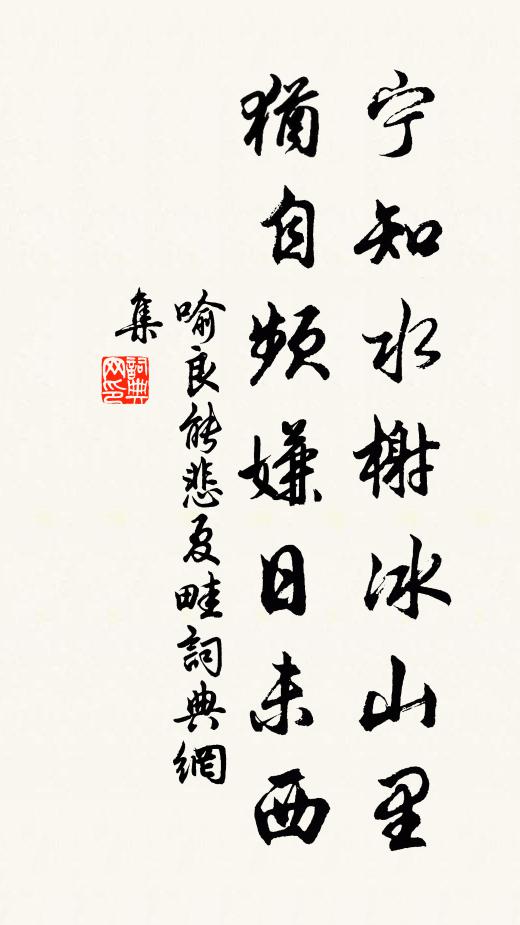 宁知水榭冰山里
猶自頻嫌日未西
喻良能悲夏畦詞典網
集
詞典
网印